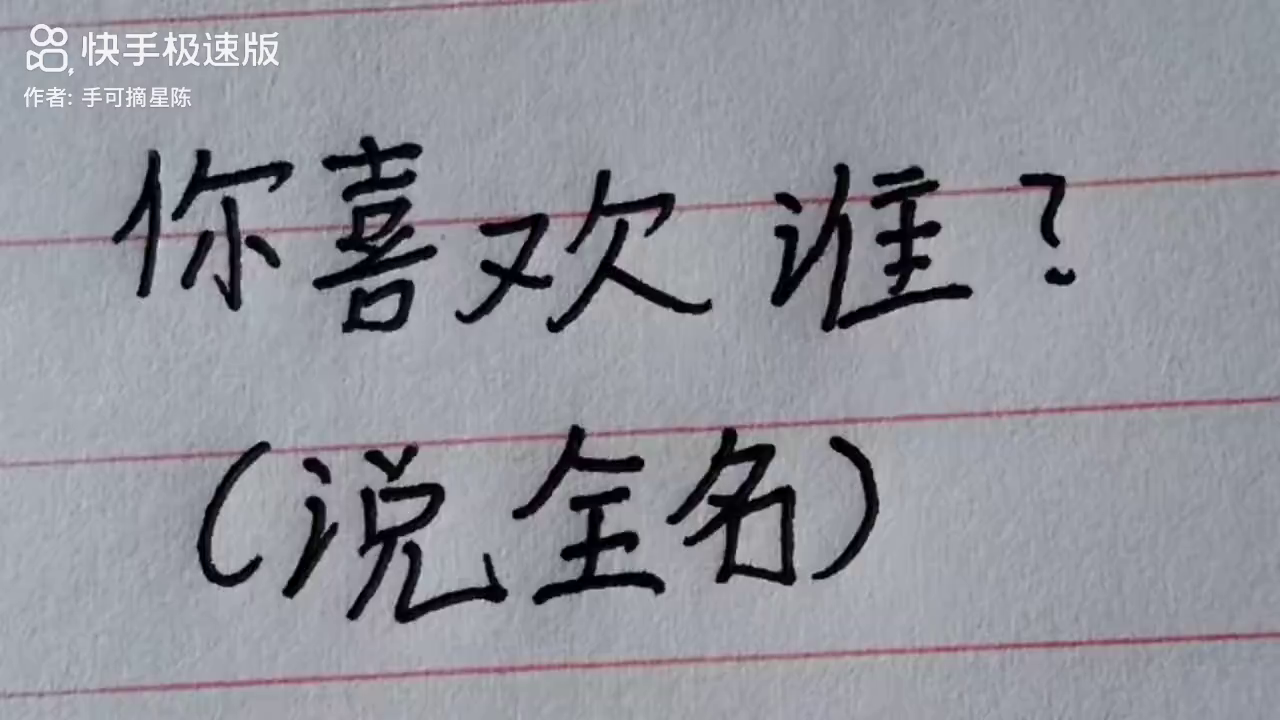 快手极速版
作者: 手可摘星陈
你喜欢谁?
(说全名)